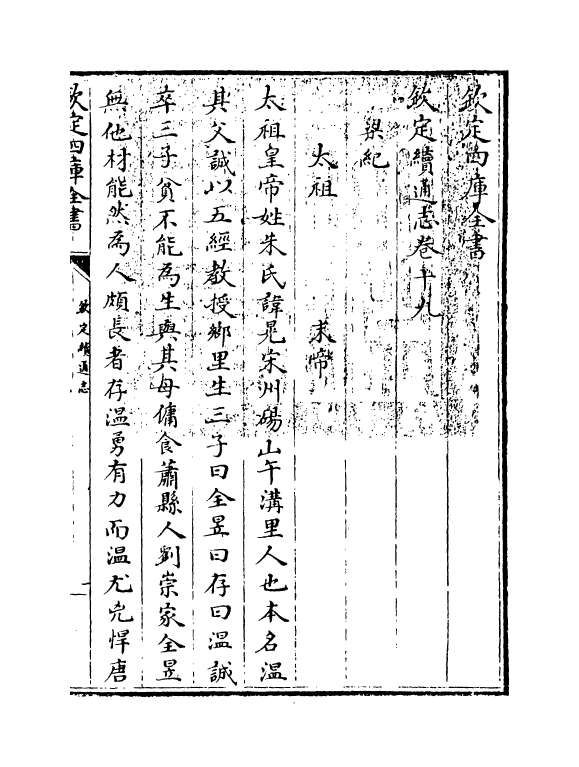 欽定四庫全書
欽定續通志卷十九
梁紀
太祖　末帝
太祖皇帝姓朱氏諱晃宋州碭山午溝里人也本名温
其父誠以五經教授鄉里生三子曰全昱曰存曰温誠
卒三子貧不能為生與其母傭食蕭縣人劉崇家全昱
無他材能然為人頗長者存温勇有力而温尤兇悍唐
欽定四庫全書
欽定續通志
一